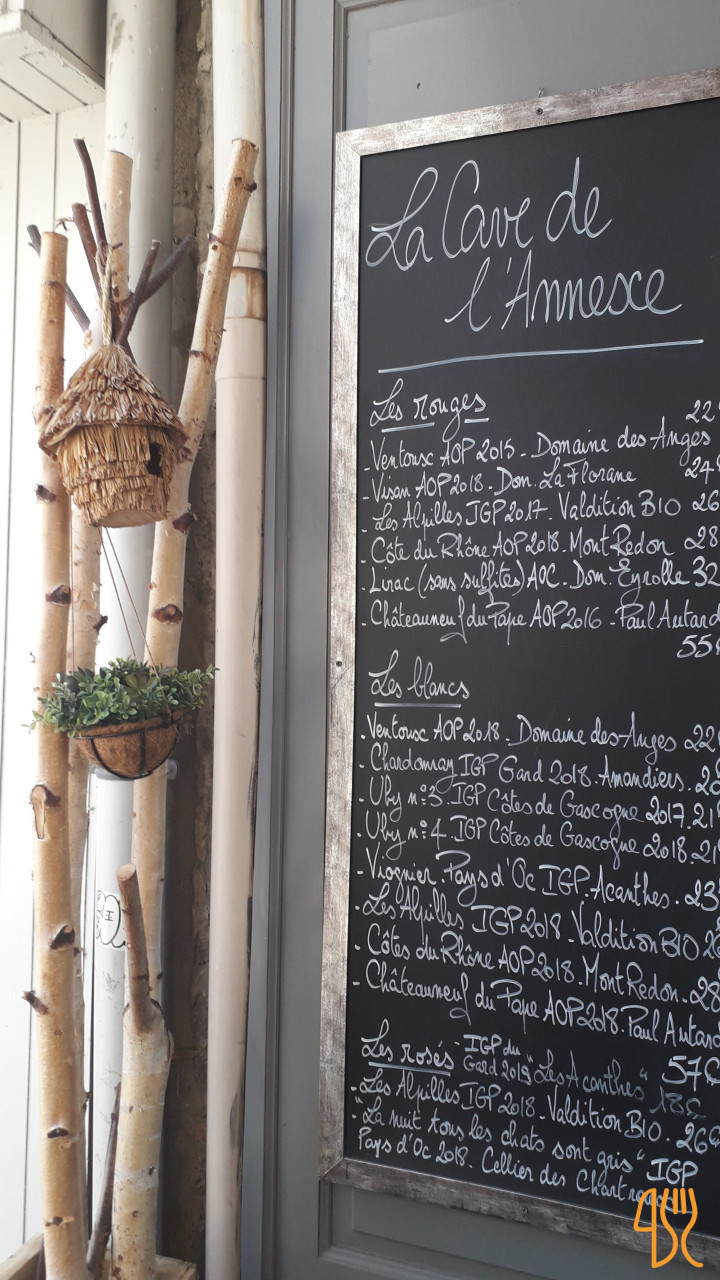 La Cave de
l'Annexe
Les rouges
22
- Ventoux AOP 2015 - Domaine des Anges
- Visan AOP 2018 - Dom. La Florane 24
- Les Alpilles IGP 2017. Valdition BIO 26
- Côte du Rhône AOP 2018. Mont Redon 28
- Lirac (sans sulfites) AOC - Dom. Eyrolle 32
- Châteauneuf du Pape AOP 2016 - Paul Autard
55€
Les blancs
- Ventoux AOP 2018 - Domaine des Anges 22
- Chardonnay IGP Gard 2018. Amandiers.
- Uby n°3. IGP Côtes de Gascogne 2017. 21
- Uby n°4. IGP Côtes de Gascogne 2018. 21
- Viognier. Pays d'Oc IGP. Acanthes. 23
- Les Alpilles IGP 2018 - Valdition BIO
- Côtes du Rhône AOP 2018. Mont Redon. 28
- Châteauneuf du Pape AOP 2018. Paul Autard
57€
Les rosés - IGP du
Gard 2019 "Les Acanthes" 18€
- Les Alpilles IGP 2018 - Valdition BIO. 26€
- "La nuit tous les chats sont gris" IGP
Pays d'Oc 2018. Cellier des